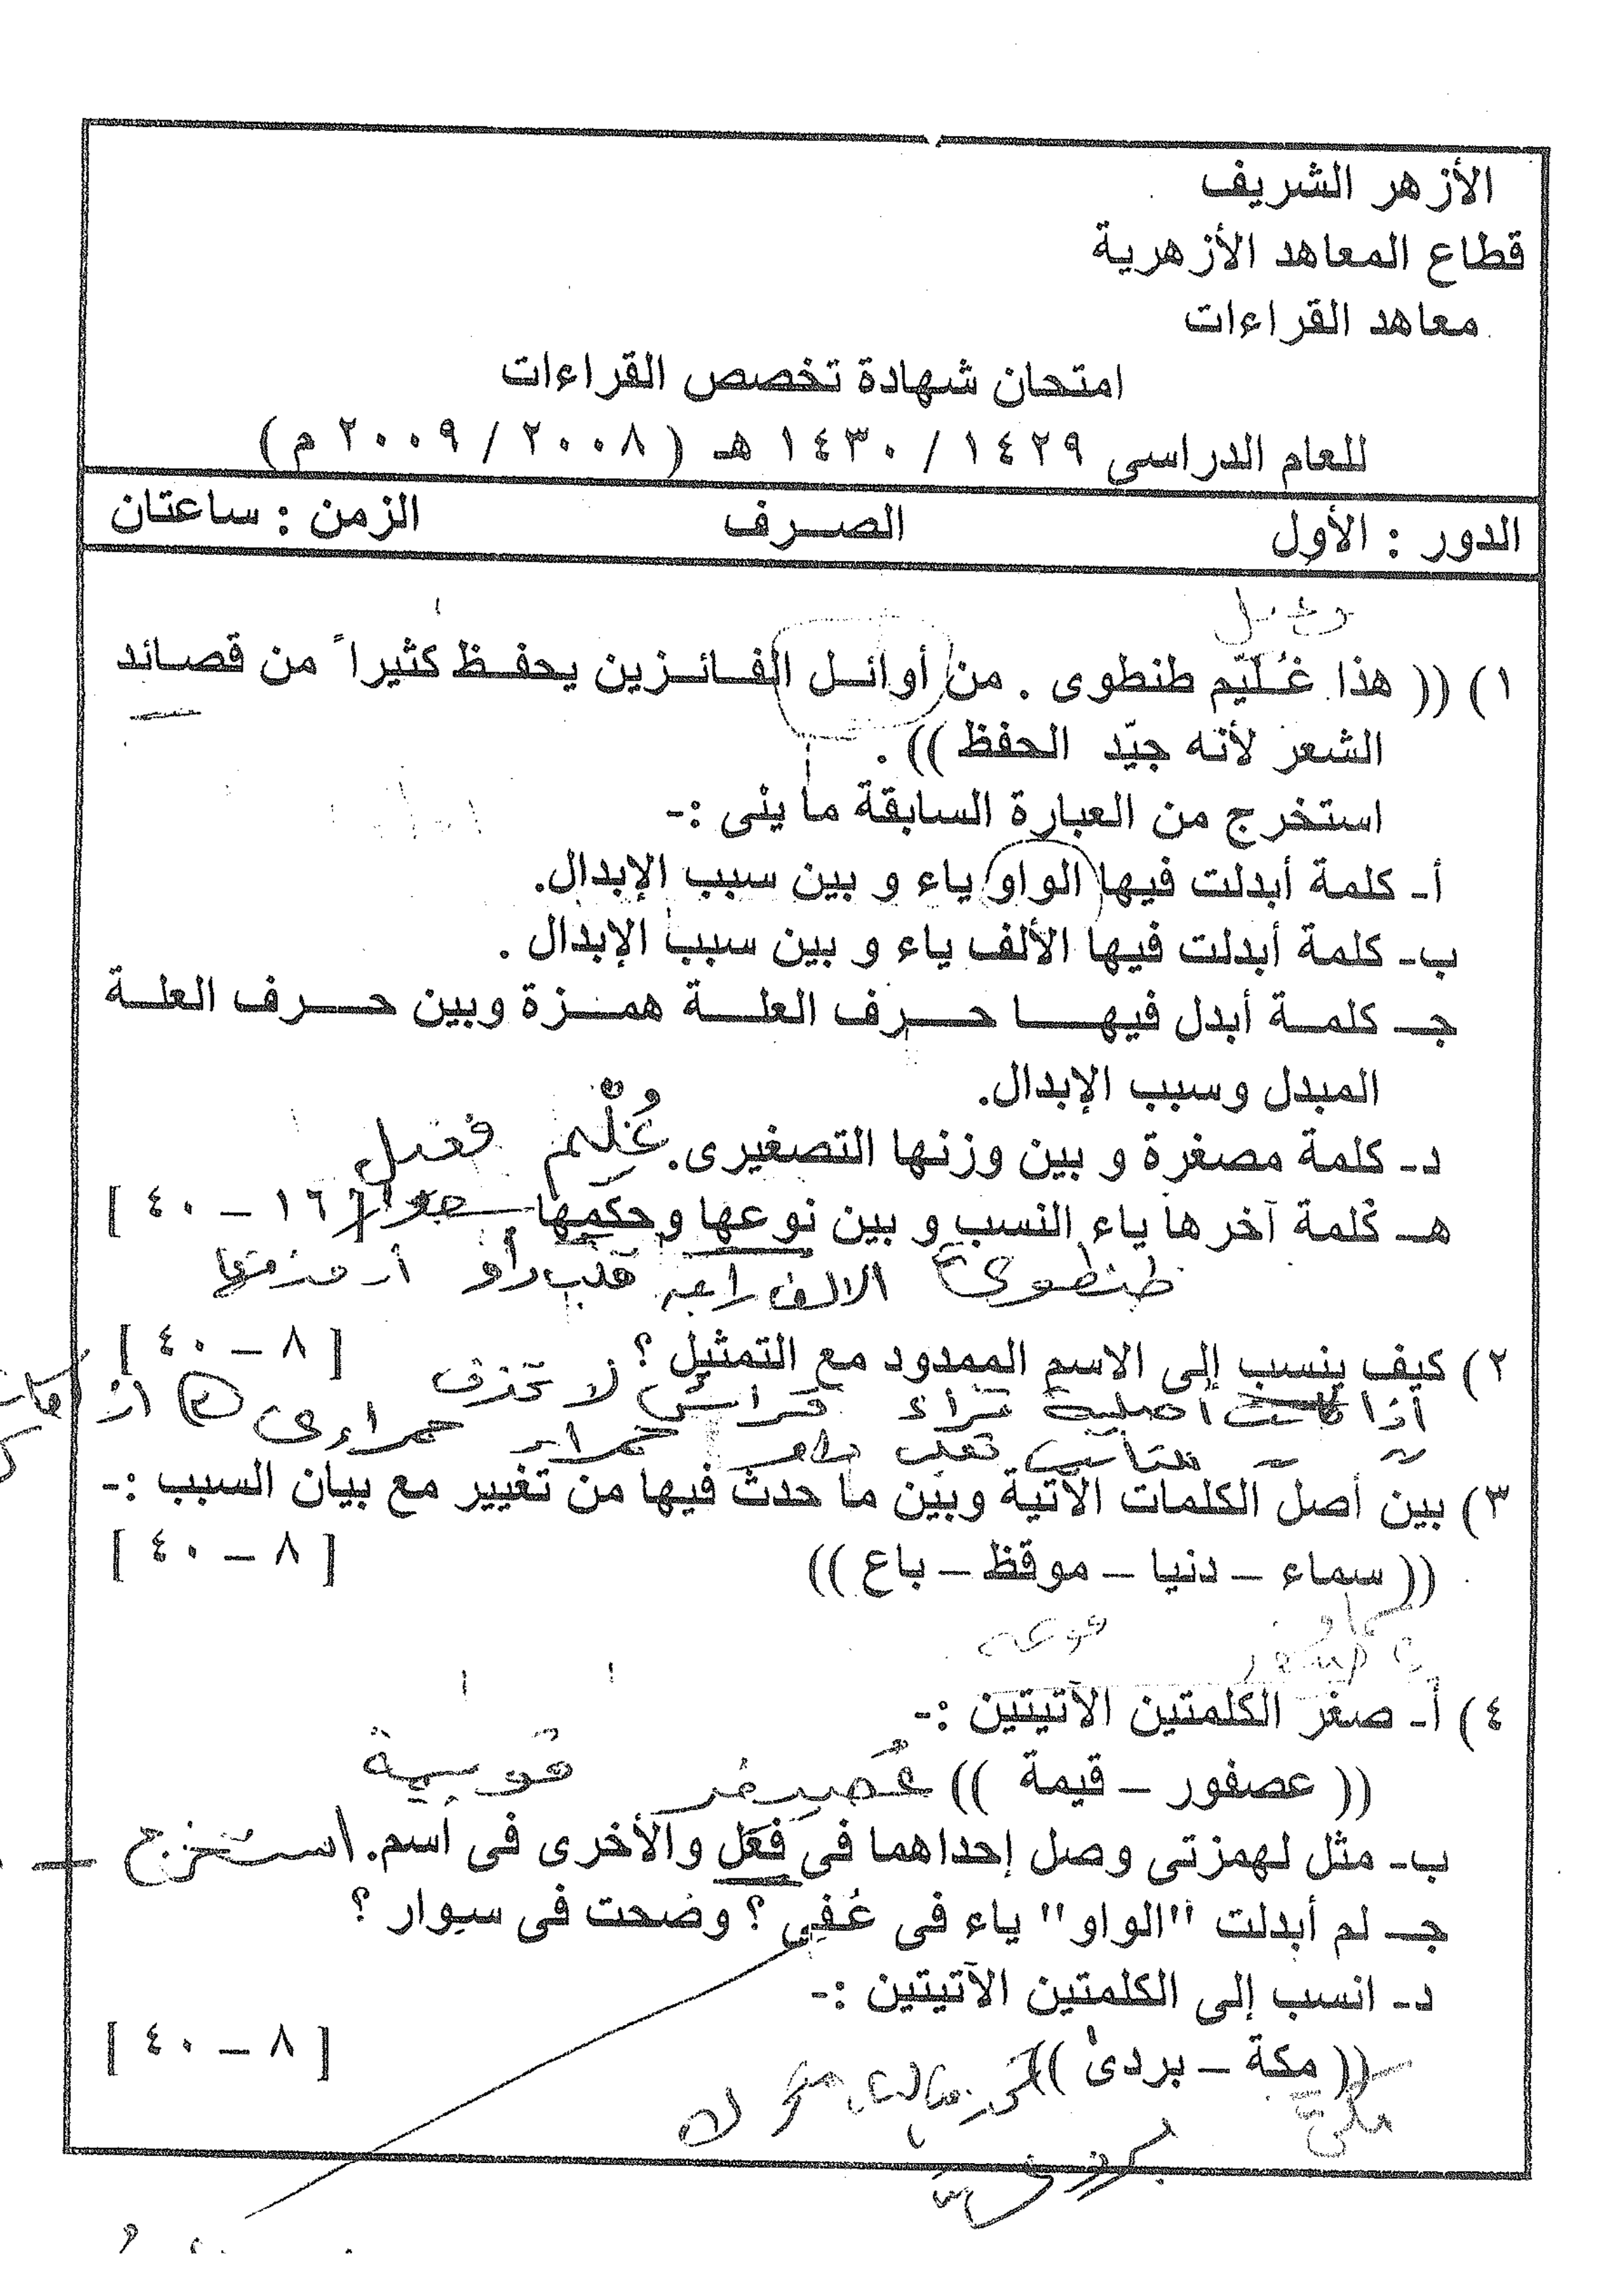 الأزهر الشريف
قطاع المعاهد الأزهرية
معاهد القراءات
امتحان شهادة تخصص القراءات
للعام الدراسى ١٤٢٩ / ١٤٣٠ هـ ( ٢٠٠٨ / ٢٠٠٩ م )
الدور : الأول الصرف الزمن : ساعتان
١) (( هذا غُلَيّم طنطوى . من أوائل الفائزين يحفظ كثيراً من قصائد
الشعر لأنه جيّد الحفظ )) .
استخرج من العبارة السابقة ما ينى :-
أ- كلمة أبدلت فيها الواو ياء و بين سبب الإبدال.
ب- كلمة أبدلت فيها الألف ياء و بين سبب الإبدال .
جـ- كلمة أبدل فيها حرف العلة همزة وبين حرف العلة
المبدل وسبب الإبدال.
د- كلمة مصغرة و بين وزنها التصغيرى. غُلَيِّم فعيل
هـ- كلمة آخرها ياء النسب و بين نوعها وحكمها [ ١٦ – ٤٠ ]
طنطوى الالف رابعة قلب واو أ
٢) كيف ينسب إلى الاسم الممدود مع التمثيل ؟ [ ٨ – ٤٠ ]
اذا كانت أصلية قراء قرائى لا تحذف
للتأنيث تقلب واو حمراء حمراوى
٣) بين أصل الكلمات الآتية وبين ما حدث فيها من تغيير مع بيان السبب :-
(( سماء – دنيا – موقظ – باع )) [ ٨ – ٤٠ ]
سماو
٤) أ- صغر الكلمتين الآتيتين :-
(( عصفور – قيمة )) عُصيفر قويمة
ب- مثل لهمزتى وصل إحداهما فى فعَل والأخرى فى أسم. استخرج
جـ- لم أبدلت "الواو" ياء فى عُفِى ؟ وضحت فى سِوار ؟
د- انسب إلى الكلمتين الآتيتين :-
(( مكة – بردىٰ )) [ ٨ – ٤٠ ]
مكىّ
بردىّ